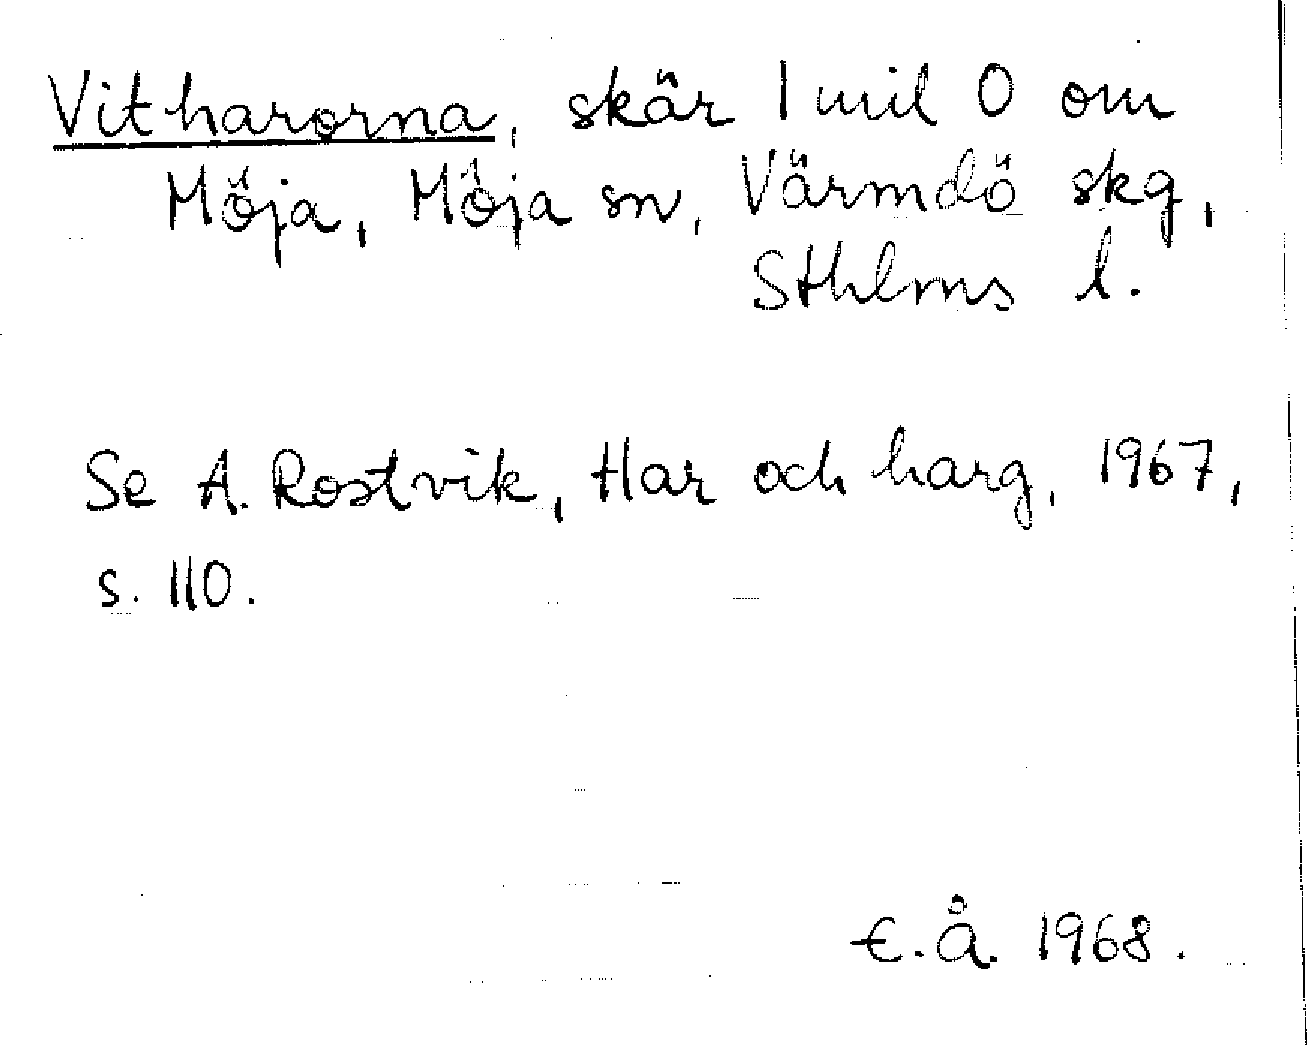 Vitharorna, skär 1 mil O om
Möja, Möja sn, Värmdö skg,
Sthlms l.
Se A. Rostvik, Har och harg, 1967,
s. 110.
E.Å. 1968.